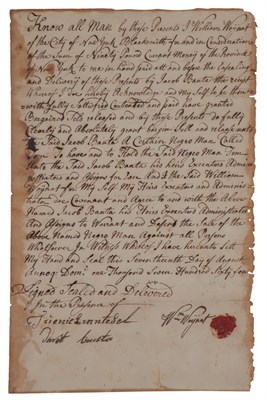 Know all Man by these Presents I William Wayant
of the City of New York Blacksmith for and in Consideration
of the Sum of Ninety Pound Current money of the Province
of New York to me in hand paid at and before the Ensealing
and Delivery of these Presents by Jacob Banta the receipt
Whereof I Do hereby Acknowledge and my Self to be there
with fully Sattisfied Contented and paid have granted
Bargained Sold released and by these Presents do fully
Clearly and Absolutely grant bargain Sell and release unto
the Said Jacob Banta A Certain Negro Man Called
to have and to Hold the Said Negro Man
Unto the Said Jacob Banta his heirs Executors Admini
strators and Assigns for Ever And I the Said William
Wayant for My Self My Heirs Executors and Administra
tors Do Covenant and Agree to and with the Above
Named Jacob Banta his Heirs Executors Administrators
And Assigns to Warrant and Defend the Sale of the
Above Named Negro Man Against all Persons
Whosoever In Witness Whereof I have hereunto Set
My Hand and Seal this Seventeenth Day of August
Domi one Thousand Seven Hundred Sixty four
Signed Sealed and Delivered
In the Presence of
Wm Wayant